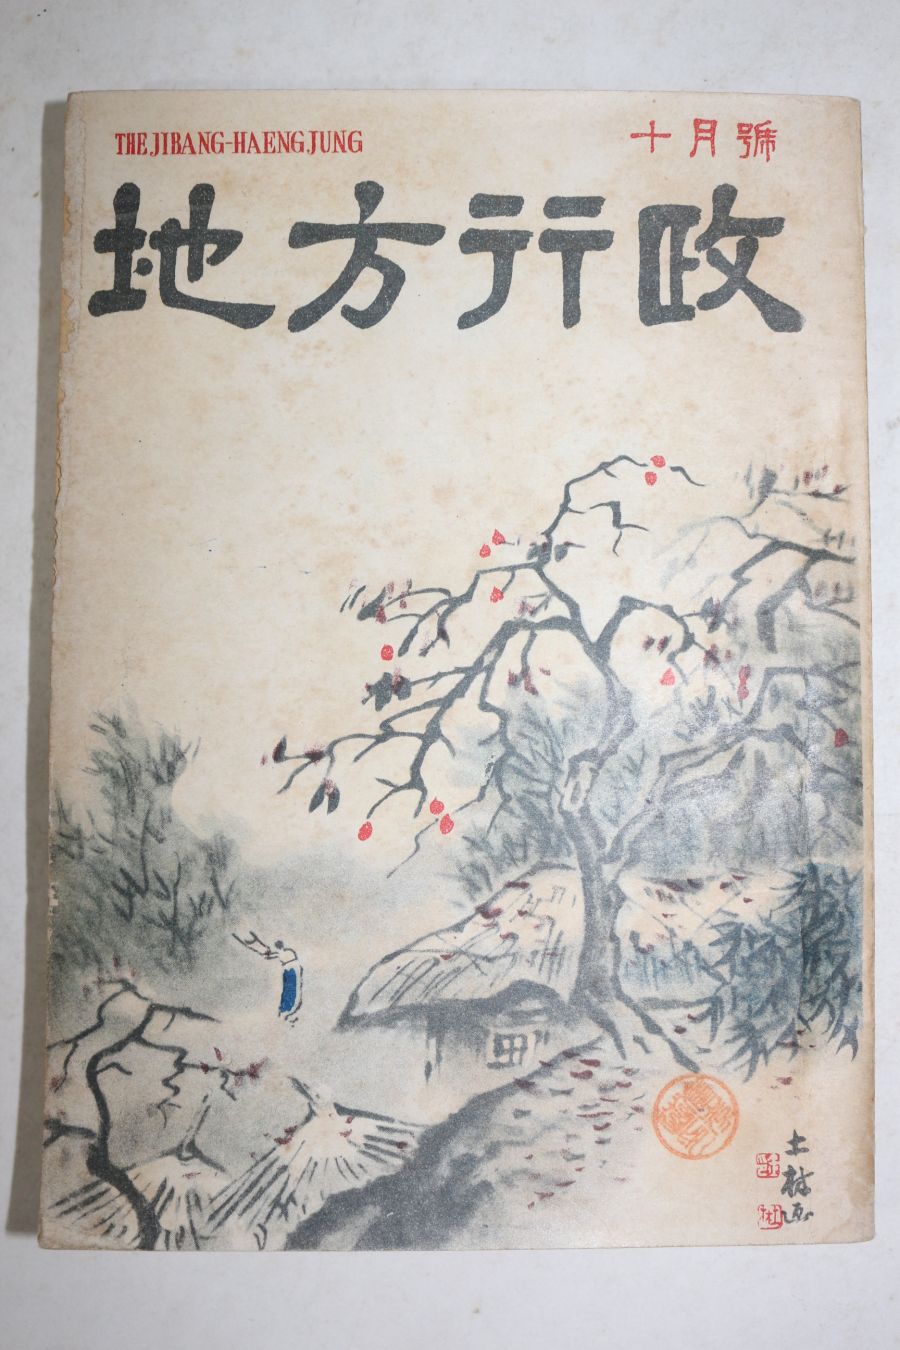 THE JIBANG-HAENG JUNG
十月號
地方行政
土林画